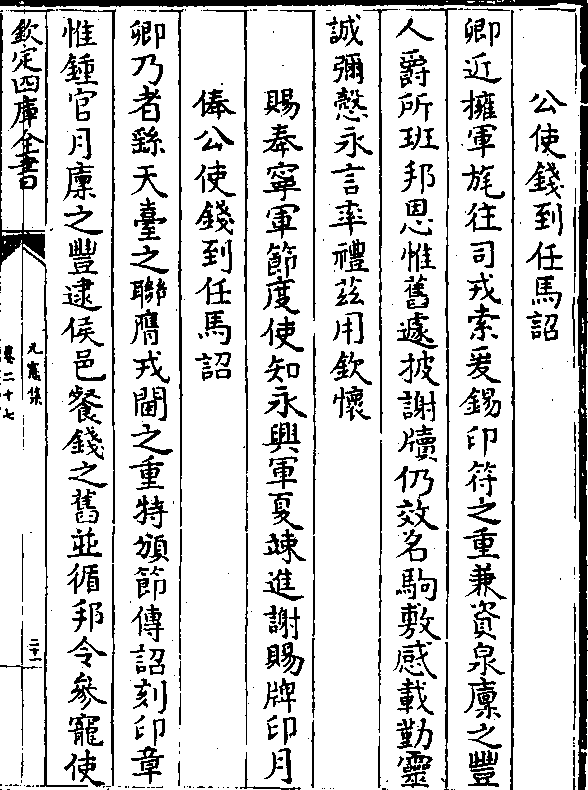 公使錢到任馬詔
卿近擁軍旄往司戎索爰錫印符之重兼資泉廩之豐
人爵所班邦恩惟舊遽披謝牘仍效名駒敷感載勤靈
誠彌慤永言率禮茲用欽懷
賜奉寧軍節度使知永興軍夏竦進謝賜牌印月
俸公使錢到任馬詔
卿乃者繇天臺之聯膺戎閫之重特頒節傳詔刻印章
惟鍾官月廩之豐逮侯邑餐錢之舊並循邦令參寵使
欽定四庫全書
元憲集
卷二十七
二十一